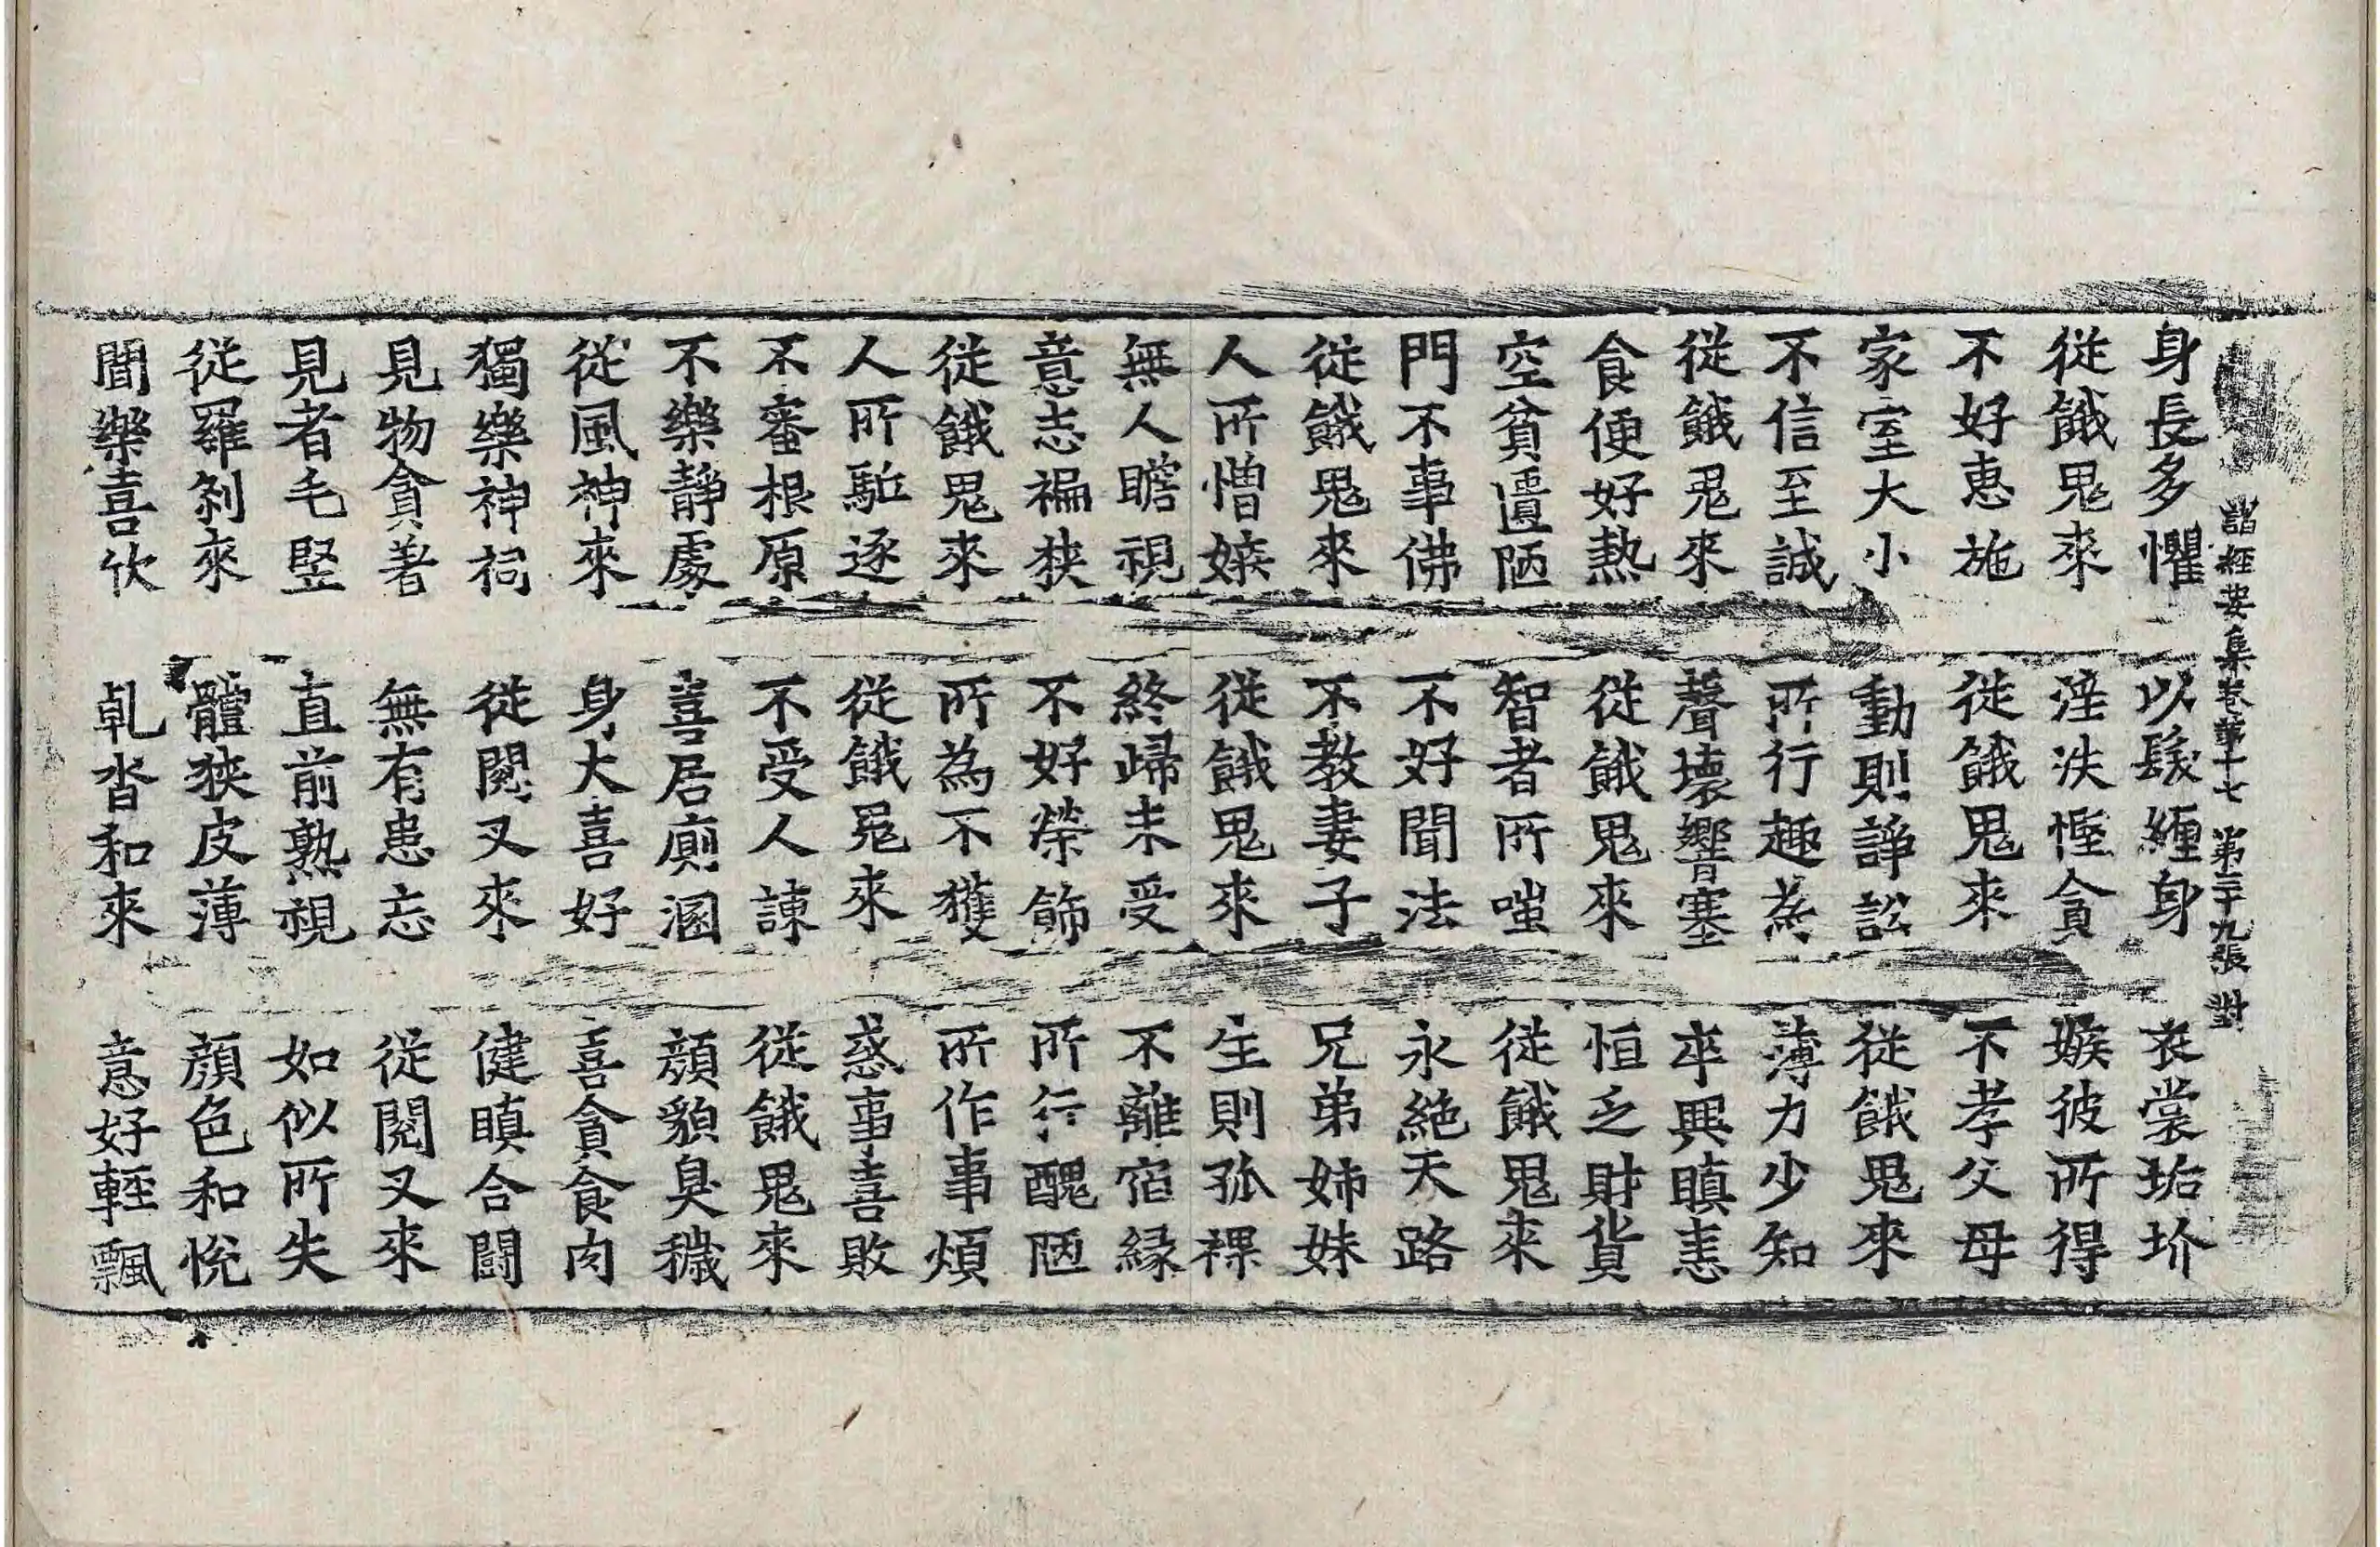 諸經要集卷第十七　第二十九張　對
身長多懼　以髮纏身　衣裳垢坋
從餓鬼來　婬泆慳貪　嫉彼所得
不好恵施　從餓鬼來　不孝父母
家室大小　動則諍訟　從餓鬼來
不信至誠　所行趣為　薄力少知
從餓鬼來　聲壞響塞　卒興瞋恚
食便好熱　從餓鬼來　恒乏財貨
空貧匱陋　智者所嗤　從餓鬼來
門不事佛　不好聞法　永絶天路
從餓鬼來　不教妻子　兄弟姊妹
人所憎嫉　從餓鬼來　生則孤裸
無人瞻視　終歸未受　不離宿縁
意志褊狹　不好榮飾　所行醜陋
從餓鬼來　所為不獲　所作事煩
人所駈逐　從餓鬼來　惑事喜敗
不審根原　不受人諫　從餓鬼來
不樂靜處　喜居廁溷　顔貌臭穢
從風神來　身大喜好　喜貪食肉
獨樂神祠　從閱叉來　健瞋合鬪
見物貪著　無有患忘　從閱叉來
見者毛竪　直前熟視　如似所失
從羅剎來　體狹皮薄　顔色和悅
聞樂喜欣　乹沓和來　意好輕飄